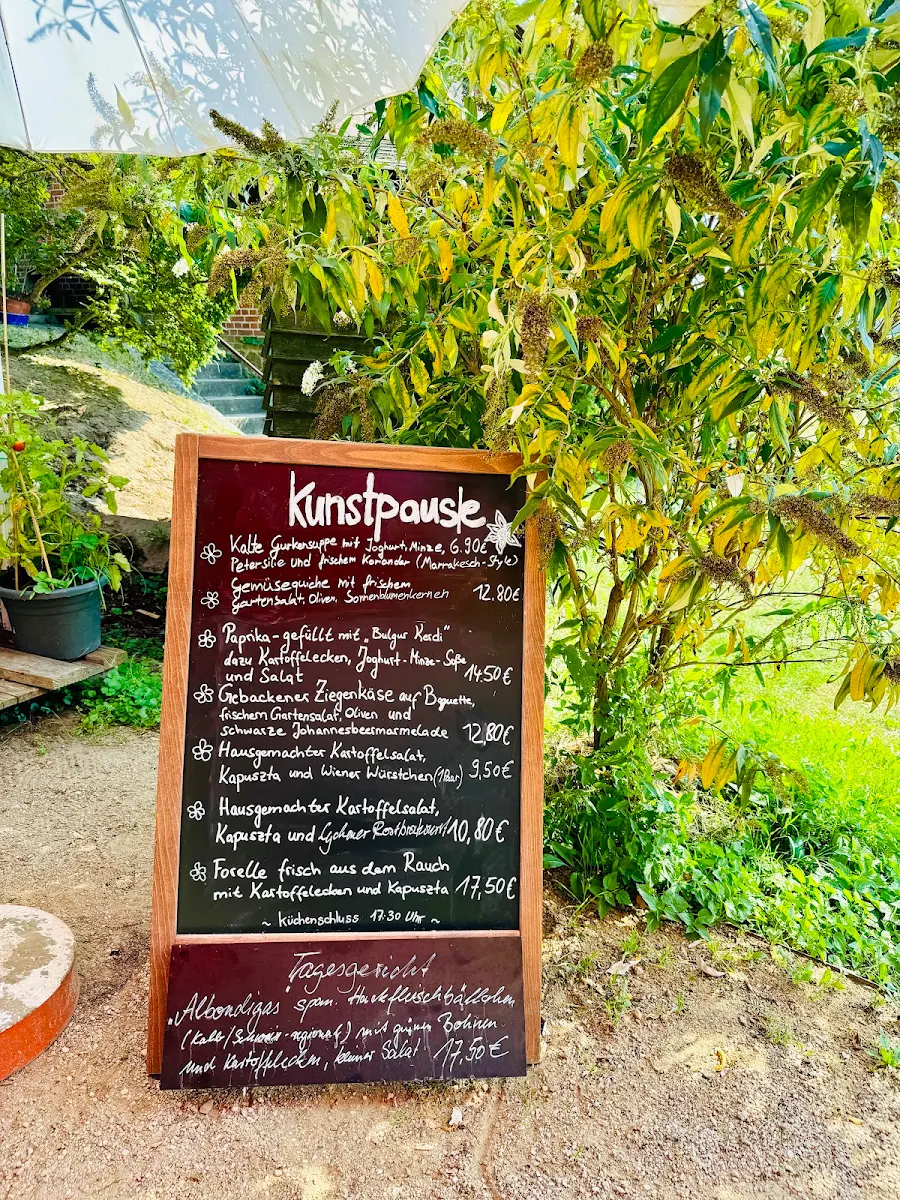 Kunstpause
Kalte Gurkensuppe mit Joghurt, Minze, 6.90€
Petersilie und frischem Koriander (Marrakesch-Style)
Gemüsequiche mit frischem
Gartensalat, Oliven, Sonnenblumenkernen 12.80€
Paprika-gefüllt mit „Bulgur Kerdi"
dazu Kartoffelecken, Joghurt-Minze-Soße
und Salat 14.50€
Gebackener Ziegenkäse auf Baguette,
frischem Gartensalat, Oliven und
schwarze Johannesbeermarmelade 12,80€
Hausgemachter Kartoffelsalat,
Kapuszta und Wiener Würstchen (1 Paar) 9,50€
Hausgemachter Kartoffelsalat,
Kapuszta und 10,80€
Forelle frisch aus dem Rauch
mit Kartoffelecken und Kapuszta 17,50€
~ Küchenschluss 17:30 Uhr ~
Tagesgericht
"Albondigas span. Hackfleischbällchen
(Kalb/Schwein-regional) mit grünen Bohnen
und Kartoffelecken, kleiner Salat 17,50€